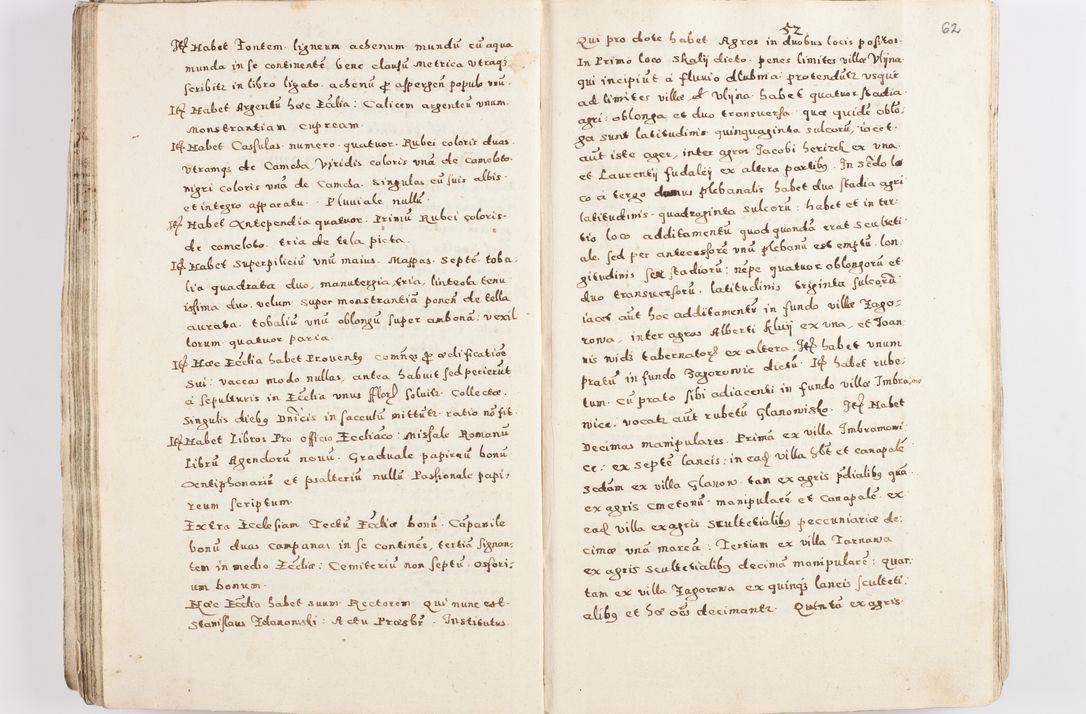 Itē Habet Fontem ligneum achenum mundū cū aqua
munda in se continentē. bene clausū Metrica utraqȝ
scribitr in libro ligato. achenū ꝑ aspergen populo unū.
Itē Habet Argentū hæc Ecclia: Calicem argenteū unum.
Monstrantiam cupream.
Itē Habet Cassulas numero quatuor. Rubei coloris duas.
Utramqȝ de Camcha, Viridis coloris unā de cameloto.
nigri coloris unā de Camcha. singulas cū suis albis.
et integro apparatu. Pluviale nullū.
Itē Habet Antependia quatuor. Primū Rubei coloris.
de cameloto. tria de tela picta.
Itē Habet superpiliciū unū maius. Mappas septē. toba:
lia quadrata duo, manutergia tria, linteola tenu
issima duo. velum super monstrantiā ponen de tella
aurata. tobaliū unū oblongū super ambonā: vexil
lorum quatuor paria.
Itē Hæc Ecclia habet Proventȝ comnes ꝑ ædificatiōe
sui: vaccas modo nullas, antea habuit sed perierūt
a sepulturis in Ecclia unus fflorȝ solvitr. Collectæ.
Singulis diebȝ Dnīcis in sacculū mittūtr ratio nō fit.
Itē Habet Libros Pro officio Eccliaco: Missale Romanū
Librū Agendorū novū. Graduale papireū bonū
Antiphonariū et psalteriū nullū Passionale papi,
reum scriptum.
Extra Ecclesiam Tectū Eccliæ bonū. Cāpanile
bonū duas campanas in se continēs, tertiā signan,
tem in medio Eccliæ: Cemiteriū non septū. Ossori,
um bonum.
Hæc Ecclia habet suum Rectorem qui nunc est
Stanislaus Zdanowski: Actu Præsbr̄. Institutus.
52
62
Qui pro dote habet Agros in duobus locis positos.
In Primo loco Skalÿ dicto penes limites villæ Vlÿna.
qui incipiūt a fluvio dlubnia: protendūtr usque
ad limites villæ Vlÿna. habet quatuor stadia
agri: oblonga et duo transversa. quæ quidē oblō:
ga sunt latitudinis quinquaginta sulcorū, iacet.
aūt iste ager, inter agros Jacobi herick ex una.
et Laurentÿ fudaleÿ ex altera partibȝ. In Sēdo lo
co a tergo domus plebanalis habet duo stadia agri
latitudinis quadraginta sulcorū: habet et in ter:
tio loco additamentū quod quondā erat sculteti:
ale, sed per antecessorē unū plebanū est emptū. lon:
gitudinis sex stadiorū: nēpe quatuor oblongorū et
duo transversorū. latitudinis triginta sulcorū
iacet aūt hoc additamentū in fundo villæ Zago:
rowa, inter agros Alberti kluÿ ex una, et Joan
nis widi tabernatorȝ ex altera. Itē habet unum
pratū in fundo Zagorowic dictū. Itē habet rube:
tum. cū prato sibi adiacenti in fundo villæ Imbramo
wice. vocatr aūt rubetū Glanowisko. Itē Habet
Decimas manipulares. Primā ex villa Imbramowi
ce: ex septē laneis: in eadȝ villa hēt et canapalē
Sedam ex villa Glanow. tam ex agris pdialibȝ quā.
ex agris cmetonū. manipularē et canapalē. ex
eadȝ villa ex agris scultetialibȝ peccuniariæ de:
cimæ unā marcā: Tertiam ex villa Tarnawa
ex agris scultetialibȝ decimā manipularē: quar:
tam ex villa Zagorowa ex quinqȝ laneis sculteti:
alibȝ et hi oēs decimantr. Quintā ex agris.